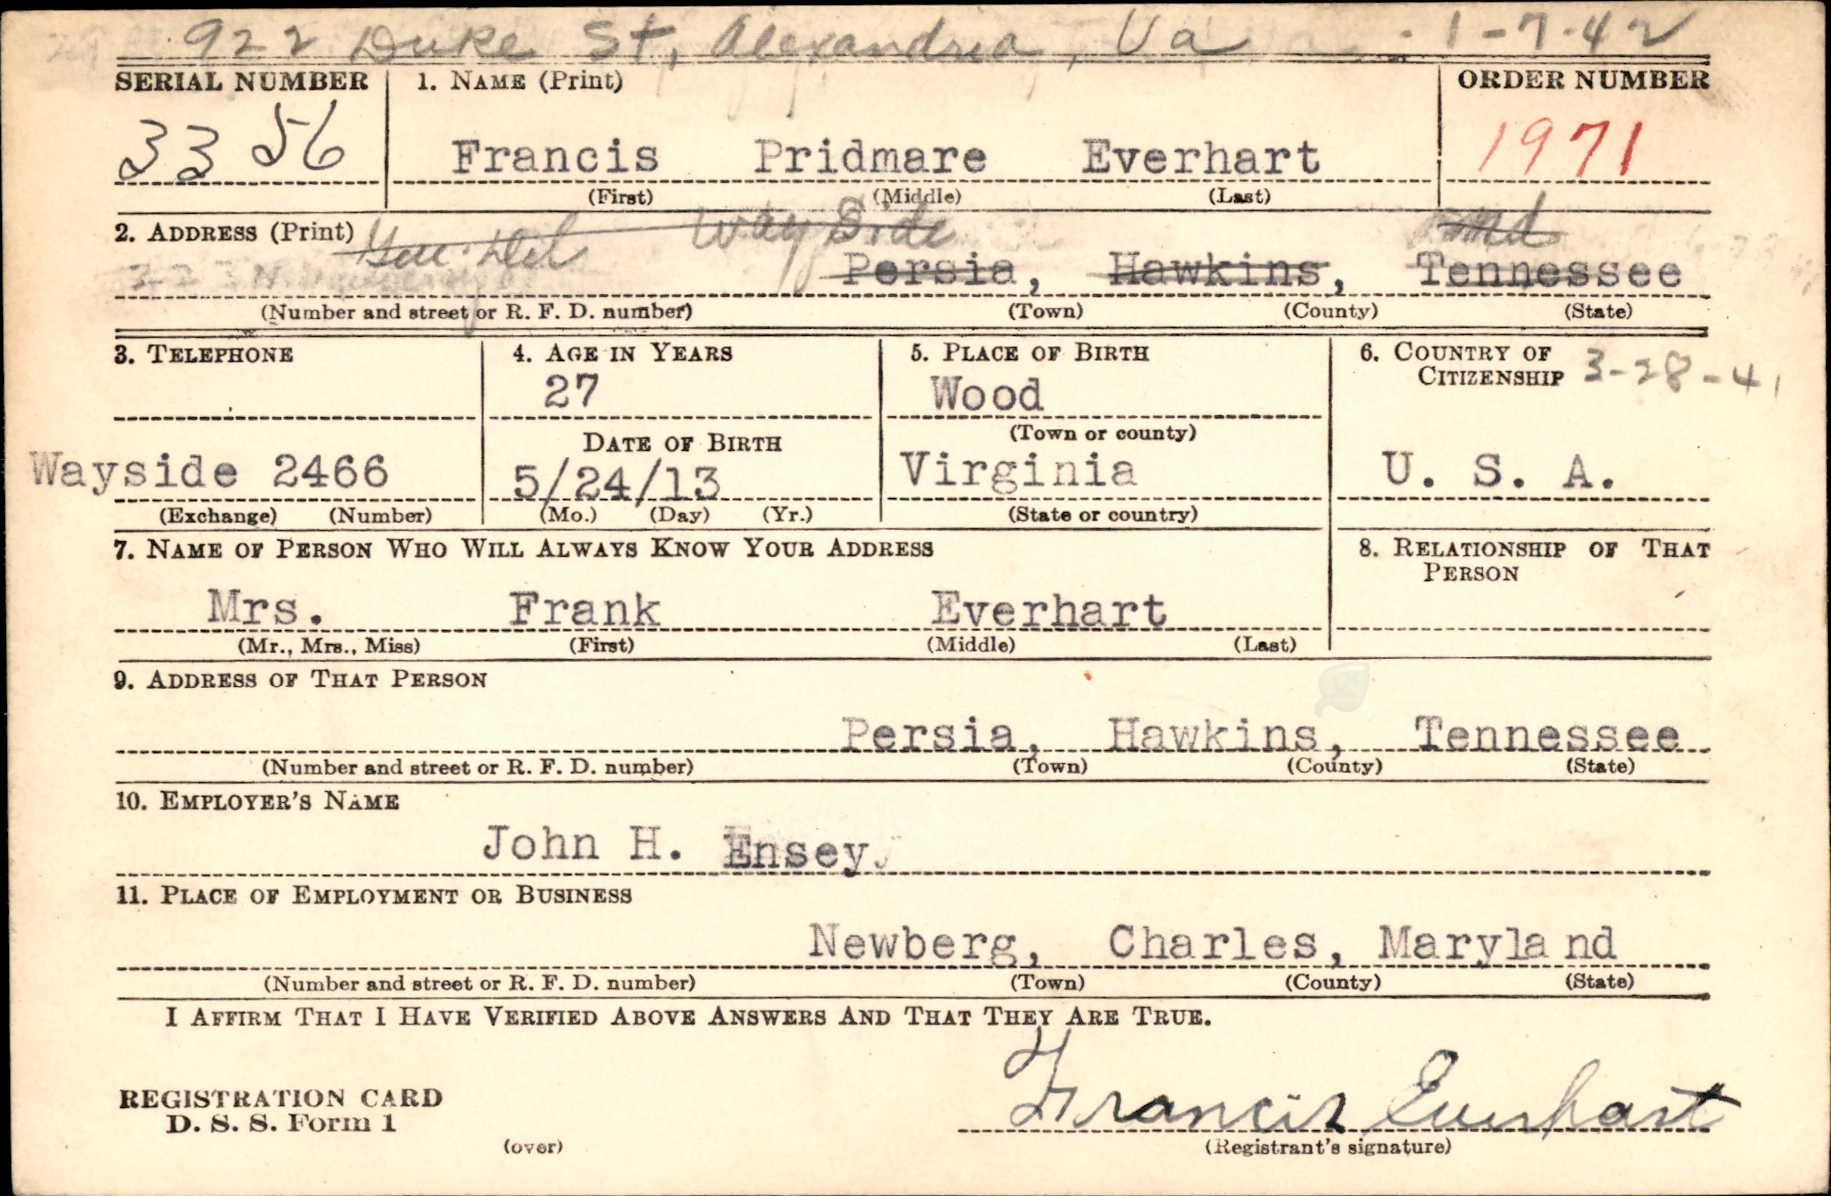 922 Duke St, Alexandria, Va 1-7-42
SERIAL NUMBER 1. NAME (Print) ORDER NUMBER
3356 Francis Pridmare Everhart 1971
(First) (Middle) (Last)
2. ADDRESS (Print) Gen. Del Way Side Md
Persia, Hawkins, Tennessee
(Number and street or R. F. D. number) (Town) (County) (State)
3. TELEPHONE 4. AGE IN YEARS 5. PLACE OF BIRTH 6. COUNTRY OF
CITIZENSHIP 3-28-41
27 Wood
(Town or county)
DATE OF BIRTH
Wayside 2466 5/24/13 Virginia U. S. A.
(Exchange) (Number) (Mo.) (Day) (Yr.) (State or country)
7. NAME OF PERSON WHO WILL ALWAYS KNOW YOUR ADDRESS 8. RELATIONSHIP OF THAT
PERSON
Mrs. Frank Everhart
(Mr., Mrs., Miss) (First) (Middle) (Last)
9. ADDRESS OF THAT PERSON
Persia, Hawkins, Tennessee
(Number and street or R. F. D. number) (Town) (County) (State)
10. EMPLOYER'S NAME
John H. Ensey
11. PLACE OF EMPLOYMENT OR BUSINESS
Newberg, Charles, Maryland
(Number and street or R. F. D. number) (Town) (County) (State)
I AFFIRM THAT I HAVE VERIFIED ABOVE ANSWERS AND THAT THEY ARE TRUE.
REGISTRATION CARD
D. S. S. Form 1
Francis Everhart
(over) (Registrant's signature)